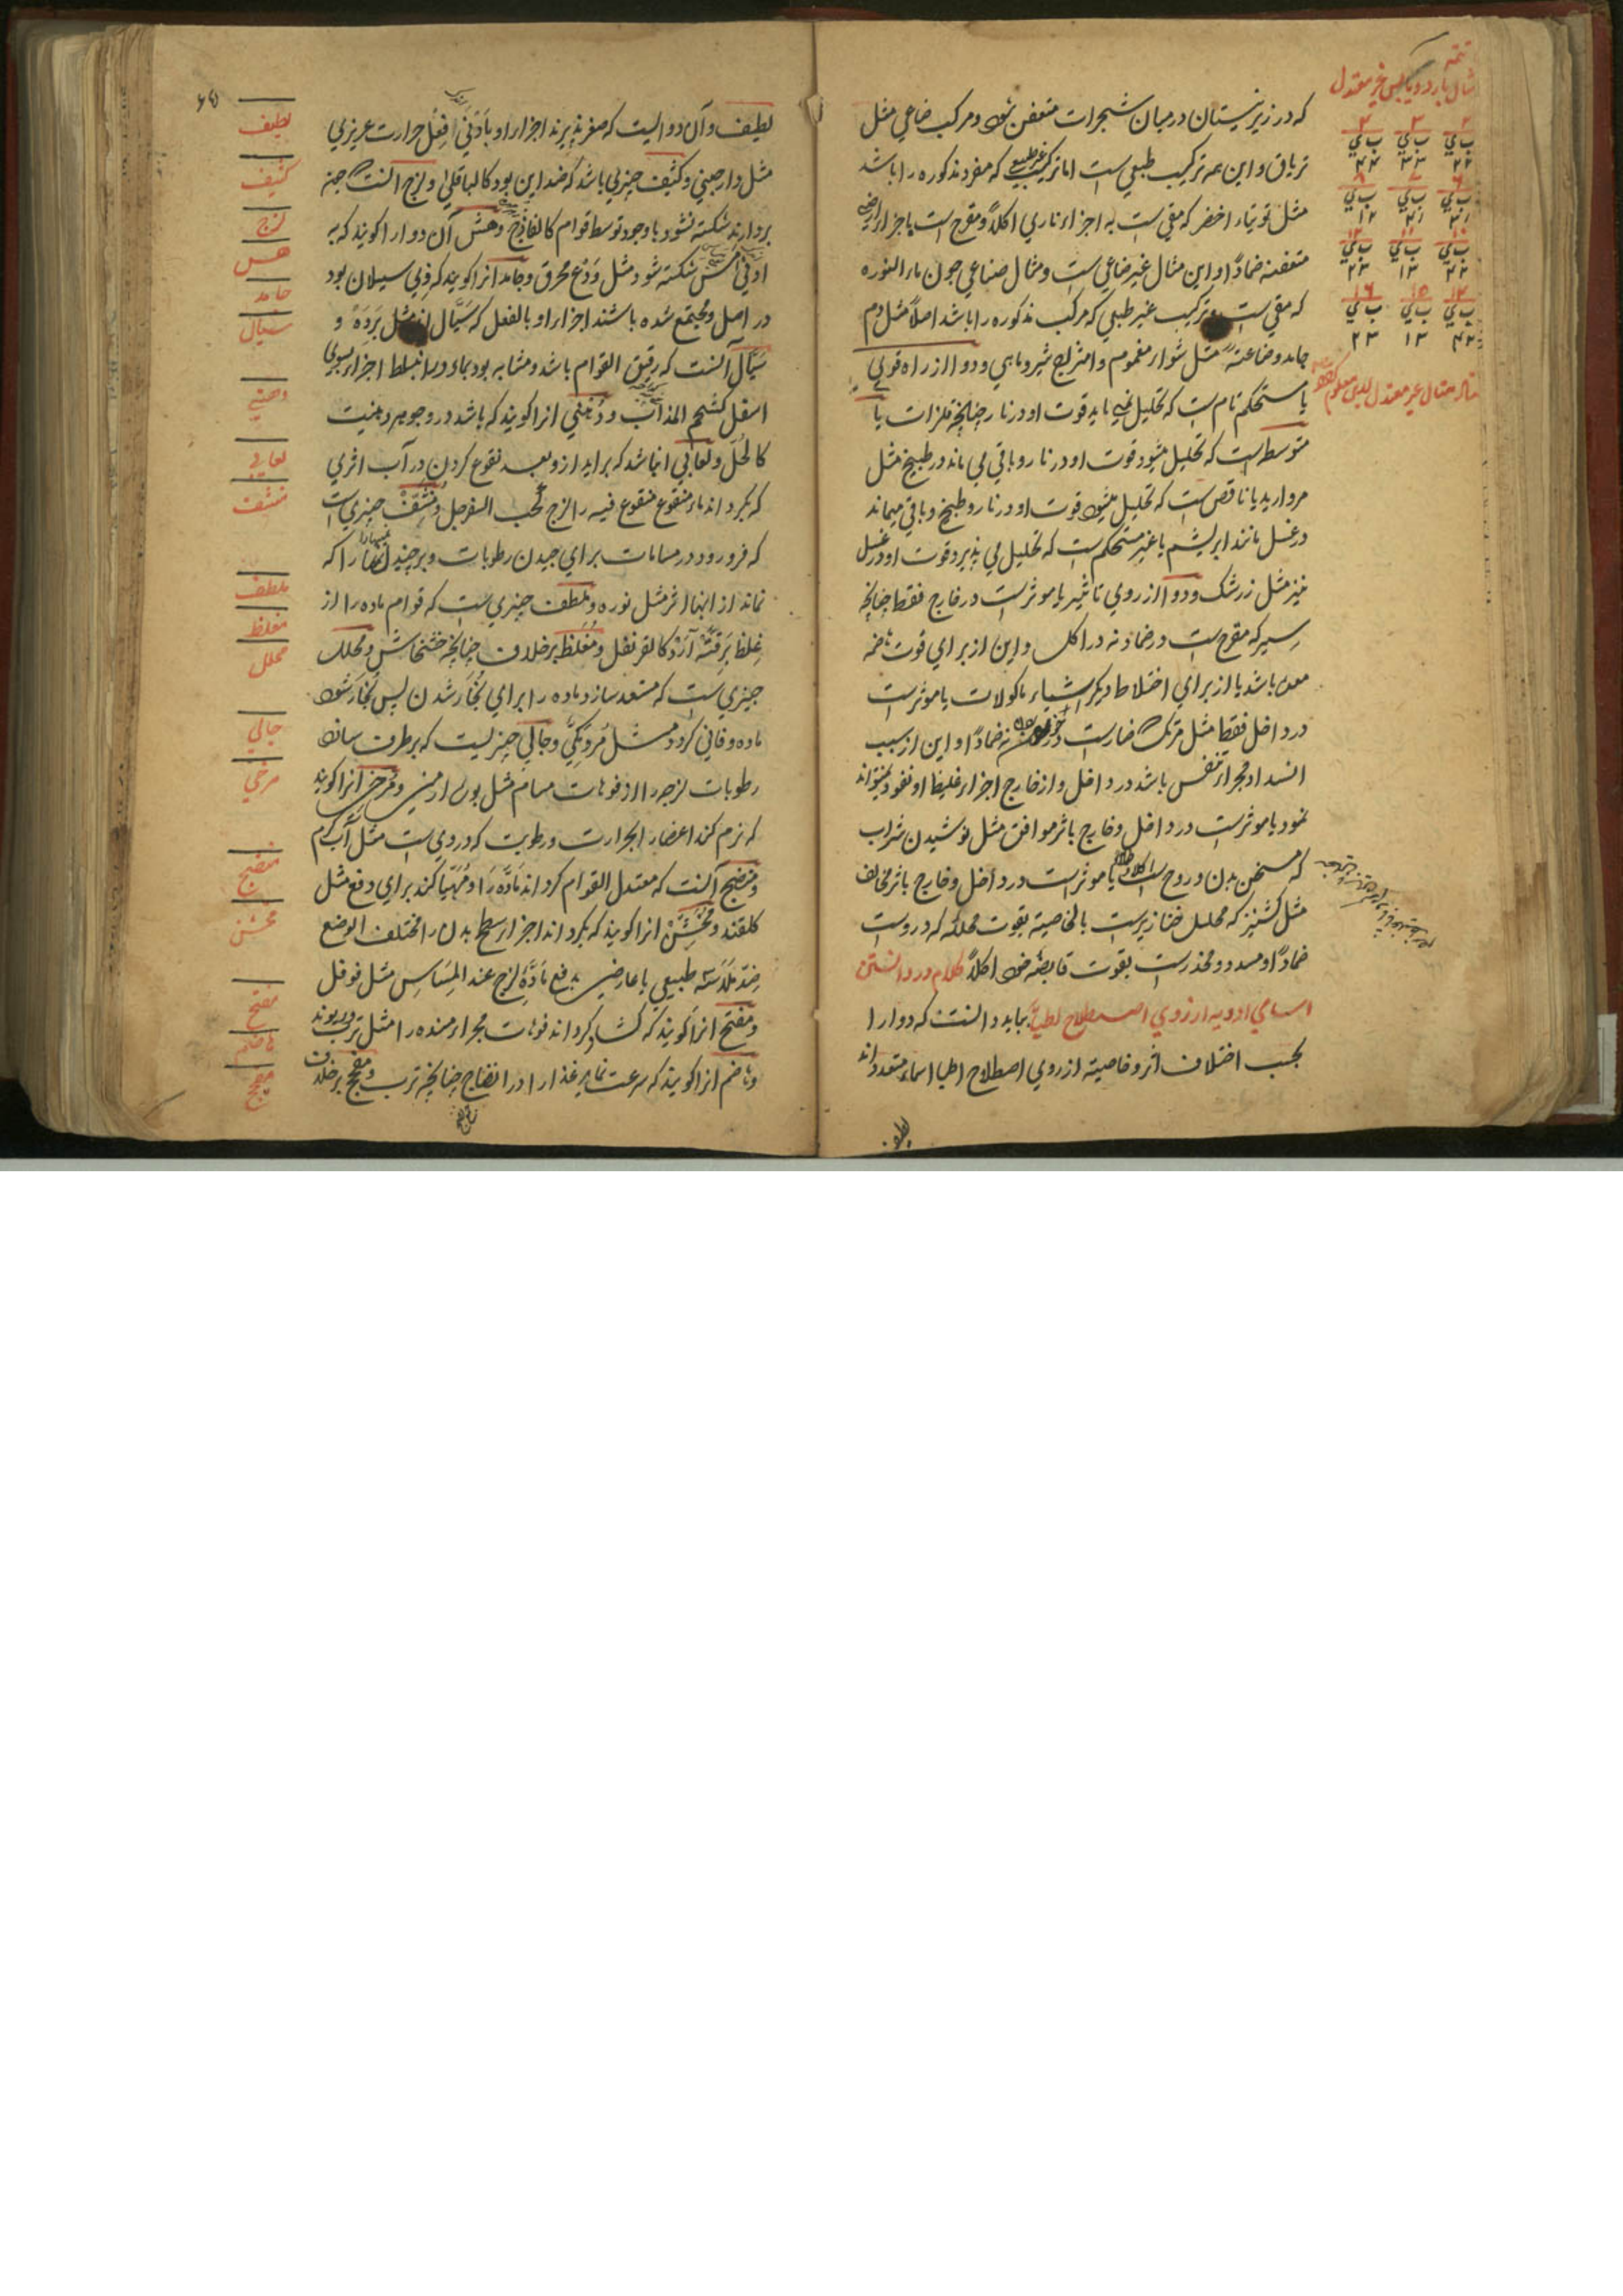 که در زیر نیستان درمیان شجرات متعفن شود و مرکب صناعی مثل
تریاق و این همه ترکیب طبعی است اما ترکیب غیر طبیعی که مفرد مذکوره را باشد
مثل توتیاء اخضر که مقی است به اجزاء ناری اکلاً و مقرح است باجزاء ارضیه
متعفنه ضماداً و این مثال غیر صناعی است و مثال صناعی چون ماء النوره
که مقی است و ترکیب غیر طبعی که مرکب مذکوره را باشد اصلاً مثل دم
جامد و صناعیه مثل شواء مغموم و امتزاج شیر و ماهی و دوا از راه قوی
یا مستحکم تام است که تحلیل نمی یابد قوت او در نار چنانچه فلزات یا
متوسط است که تحلیل میشود قوت او در نار و باقی می ماند در طبیخ مثل
مروارید یا ناقص است که تحلیل میشود قوت او در نار و طبیخ و باقی میماند
در غسل مانند ابریشم یا غیر مستحکم است که تحلیل می پذیرد قوت او در غسل
نیز مثل زرشک و دوا از روی تاثیر یا موثر است در خارج فقط چنانچه
سیر که مقرح است در ضماد نه در اکل و این از برای قوت هاضمه
معده باشد یا از برای اختلاط دیگر اشیاء ماکولات یا موثر است
در داخل فقط مثل مرتک ضار است در خوردن نه ضماداً و این از سبب
انسداد مجراء تنفس باشد در داخل و از خارج اجزاء غلیظ او نفوذ نمیتواند
نمود یا موثر است در داخل و خارج باثر موافق مثل نوشیدن شراب
که مسخن بدن و روح است اکلاً و طلاءً یا موثر است در داخل و خارج باثر مخالف
مثل کشنیز که محلل خنازیر است بالخاصیه بقوت محلله که دروست
ضماداً و مسدد و مخدر است بقوت قابضه خود اکلاً کلام در دانستن
اسامی ادویه از روی اصطلاح اطبا بباید دانست که دوا را
بحسب اختلاف اثر و خاصیته از روی اصطلاح اطبا اسماء متعدد اند
لطیف
تتمه
مثال بارد و یابس غیر معتدل
لطیف و آن دوائیست که صغر پذیرند اجزاء او بادنی فعل حرارت غریزی
مثل دارچینی و کثیف چیزی باشد که ضد این بود کالباقلی و لزج آنست چون
بردارند شکسته نشود با وجود توسط قوام کالفانیذ و هش آن دوا را گویند که به
ادنی مس شکسته شود مثل ودع محرق و جامد آنرا گویند که ذی سیلان بود
در اصل و مجتمع شده باشند اجزاء او بالفعل که سیال اند مثل برده و
سیال آنست که رقیق القوام باشد و مشابه بود بماء و در انبساط اجزاء بسوی
اسفل کشحم المذاب و دهنی آنرا گویند که باشد در و جوهر دهنیت
کالخل و لعابی انباشد که برآید ازو بعد نقوع کردن در آب اثری
که بگرداند ماء منقوع منقوع فیه را لزج کحب السفرجل و منشف چیزی است
که فرو رود در مسامات برای چیدن رطوبات و برچیند آنها را که
نماند از آنها اثر مثل نوره و ملطف چیزی است که قوام ماده را از
غلظ برقت آرد کالقرنفل و مغلظ برخلاف چنانچه خشخاش و محلل
چیزی است که مستعد سازد ماده را برای بخار شدن پس بخار شود
ماده و فانی گردد مثل و جالی چیزیست که برطرف سازد
رطوبات لزجه را از فوهات مسام مثل بوره ارمنی و مرخی آنرا گویند
که نرم کند اعضا را بحرارت و رطوبت که دروی است مثل آب گرم
و منضج آنست که معتدل القوام گرداند ماده را و مهیا کند برای دفع مثل
گلقند و مخشن آنرا گویند که بگرداند اجزاء سطح بدن را مختلف الوضع
ضد ملاسته طبیعی یا عارضی بدفع ماده لزج عند المساس مثل فوفل
و مفتح آنرا گویند که کشاد گرداند فوهات مجراء منسده را مثل تربد و ریوند
و هاضم آنرا گویند که سرعت نماید غذا را در انضاج چنانچه ترب و مفجج برخلاف
لطیف
کثیف
لزج
هش
جامد
سیال
دهنی
لعابی
منشف
ملطف
مغلظ
محلل
جالی
مرخی
منضج
مخشن
مفتح
هاضم
مفجج